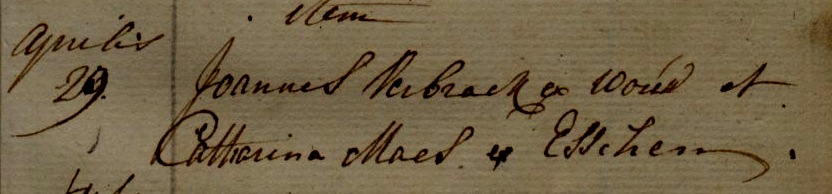 item
Aprilis
29. Joannes Verbraek ex Wouw et
Catharina Maes ex Esschen.